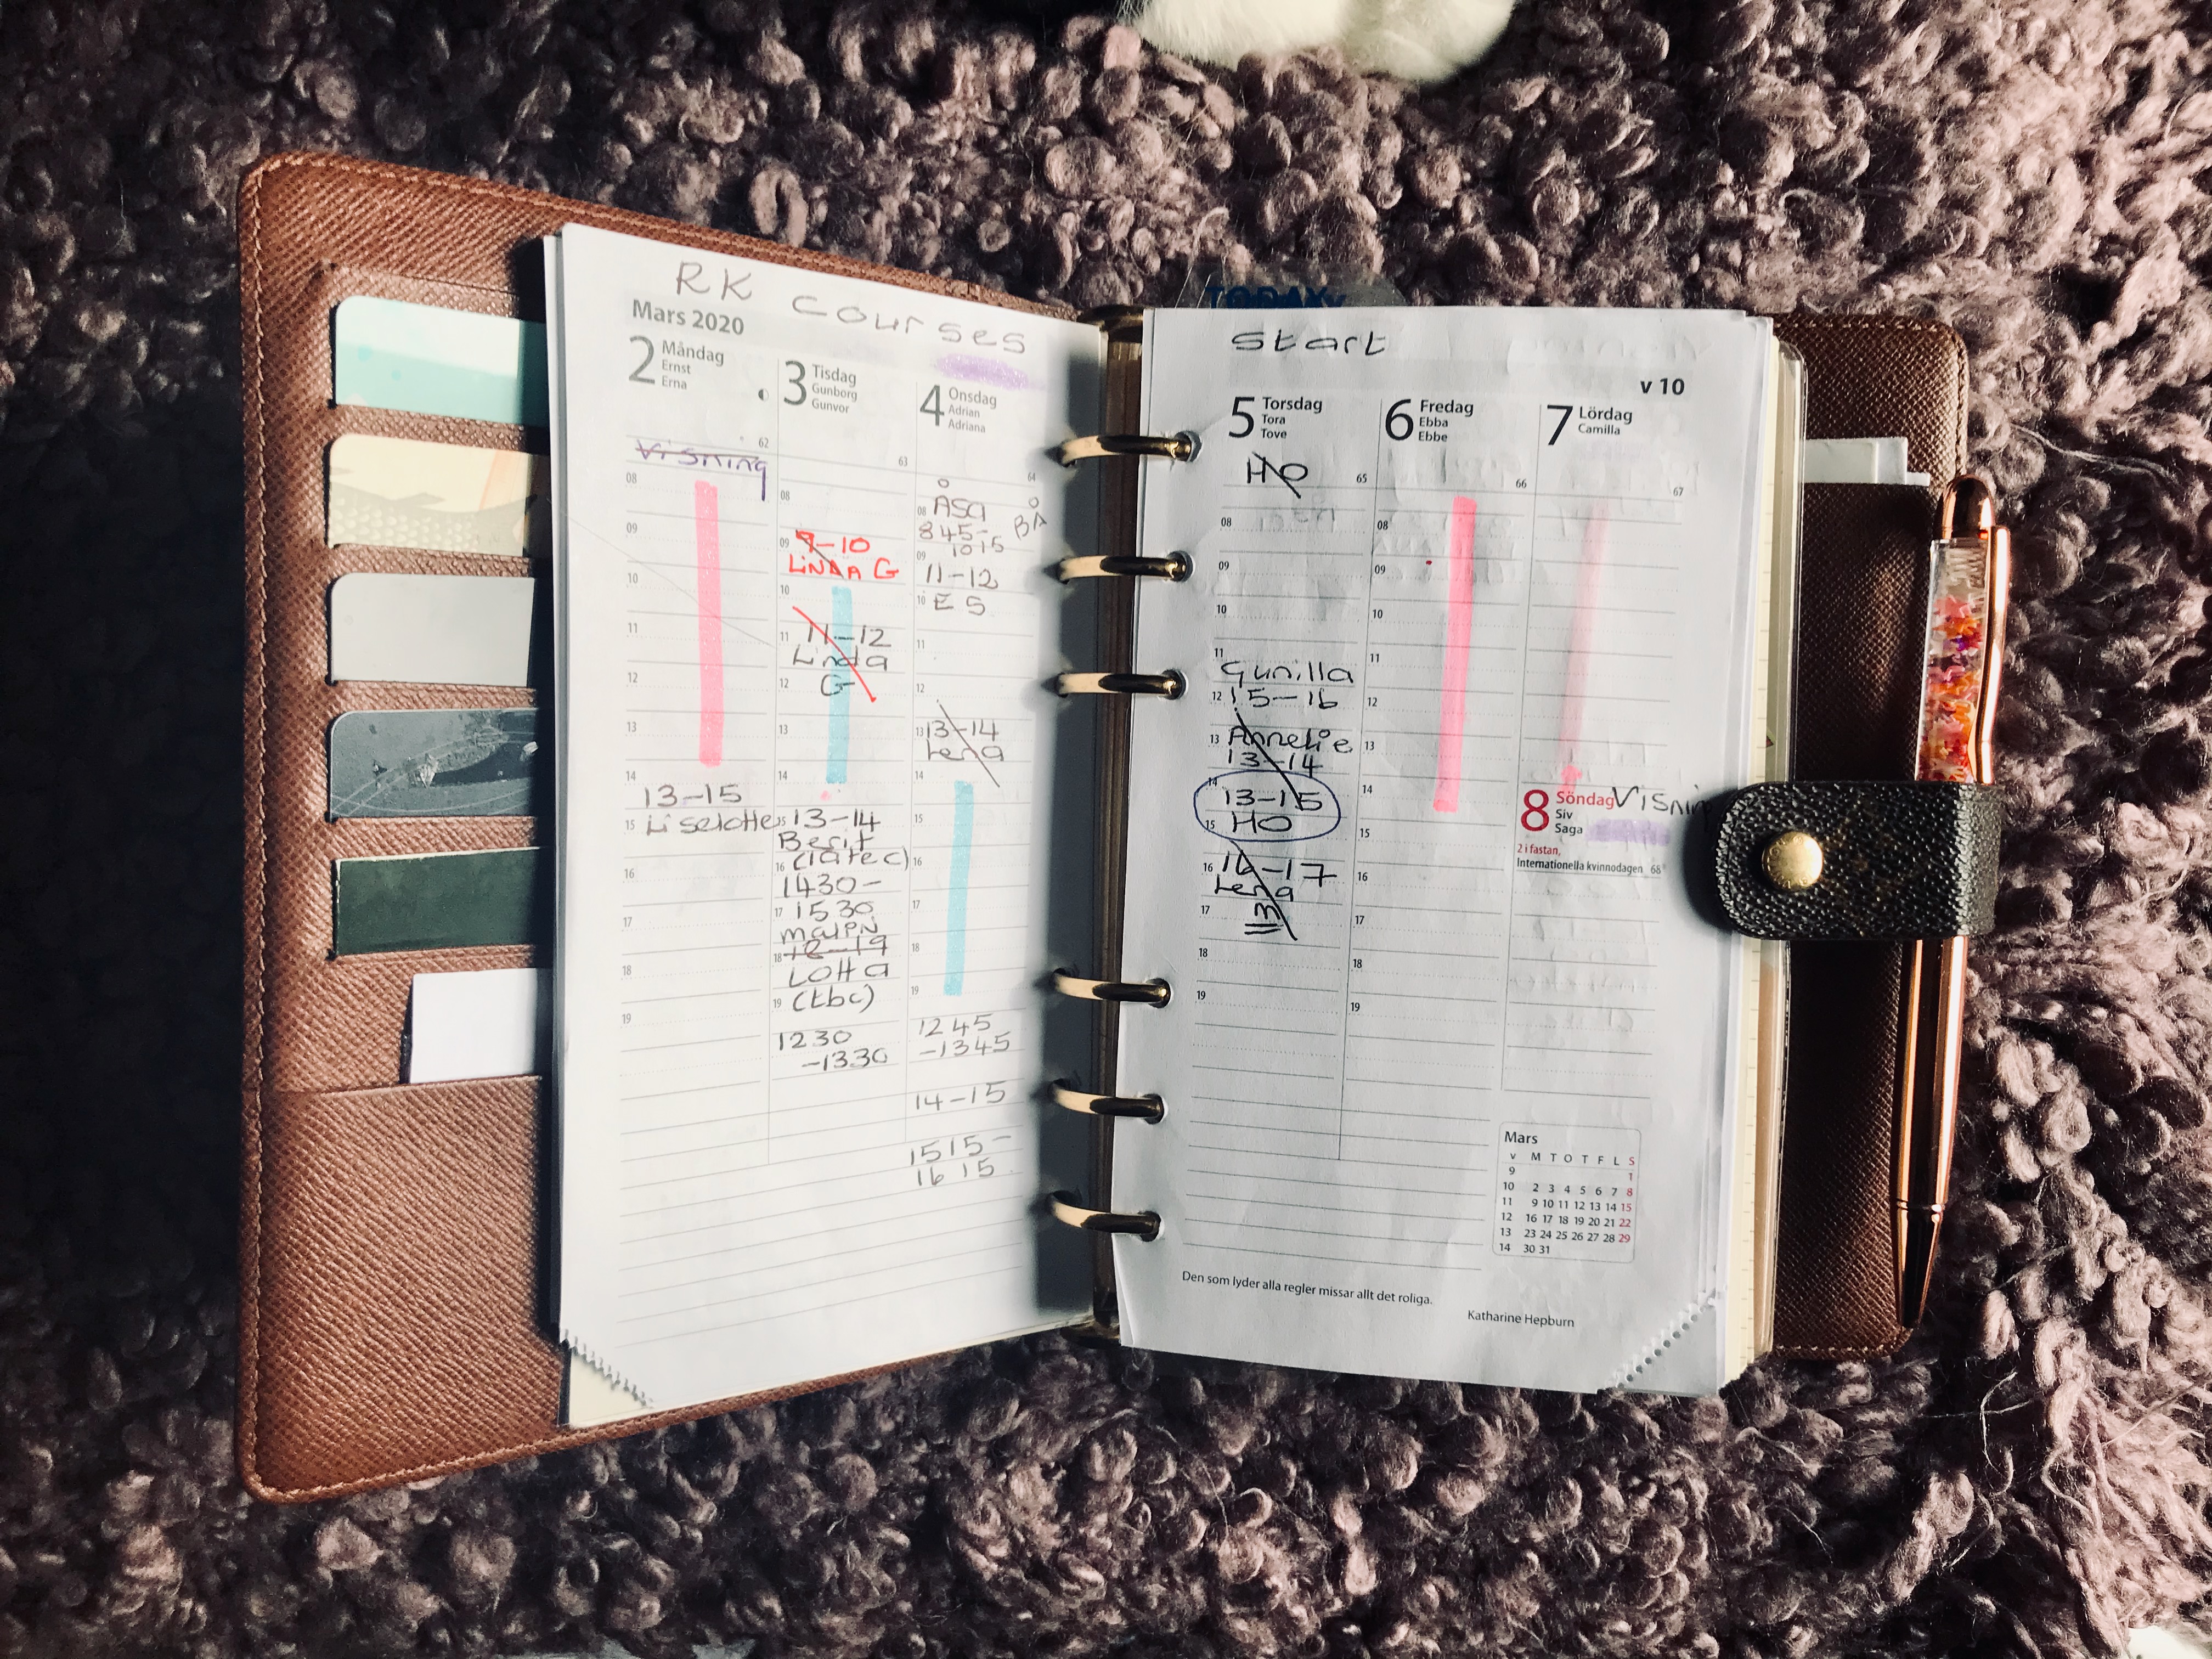 RK courses
Mars 2020
2 Måndag
Ernst
Erna
62
Visning
08
09
10
11
12
13
14
13-15
15 Liselotte
16
17
18
19
3 Tisdag
Gunborg
Gunvor
63
08
09 9-10
LINDA G
10
11 11-12
Linda
12 G
13
14
15 13-14
Berit
16 (latec)
1430-
17 1530
malin
18 18-19
Lotta
19 (tbc)
1230
-1330
4 Onsdag
Adrian
Adriana
64
08 Åsa
BÅ
845-
09 1015
11-12
10 E S
11
12
13 13-14
Lena
14
15
16
17
18
19
1245
-1345
14-15
1515-
1615
TODAY
Start
v 10
5 Torsdag
Tora
Tove
HO
65
08
09
10
11
Gunilla
12 15-16
13 Annelie
13-14
14
13-15
15 HO
16 16-17
Lena
17 m
18
19
6 Fredag
Ebba
Ebbe
66
08
09
10
11
12
13
14
15
16
17
18
19
7 Lördag
Camilla
67
8 Söndag Visnin
Siv
Saga
2 i fastan,
Internationella kvinnodagen 68
Mars
v M T O T F L S
9 1
10 2 3 4 5 6 7 8
11 9 10 11 12 13 14 15
12 16 17 18 19 20 21 22
13 23 24 25 26 27 28 29
14 30 31
Den som lyder alla regler missar allt det roliga.
Katharine Hepburn